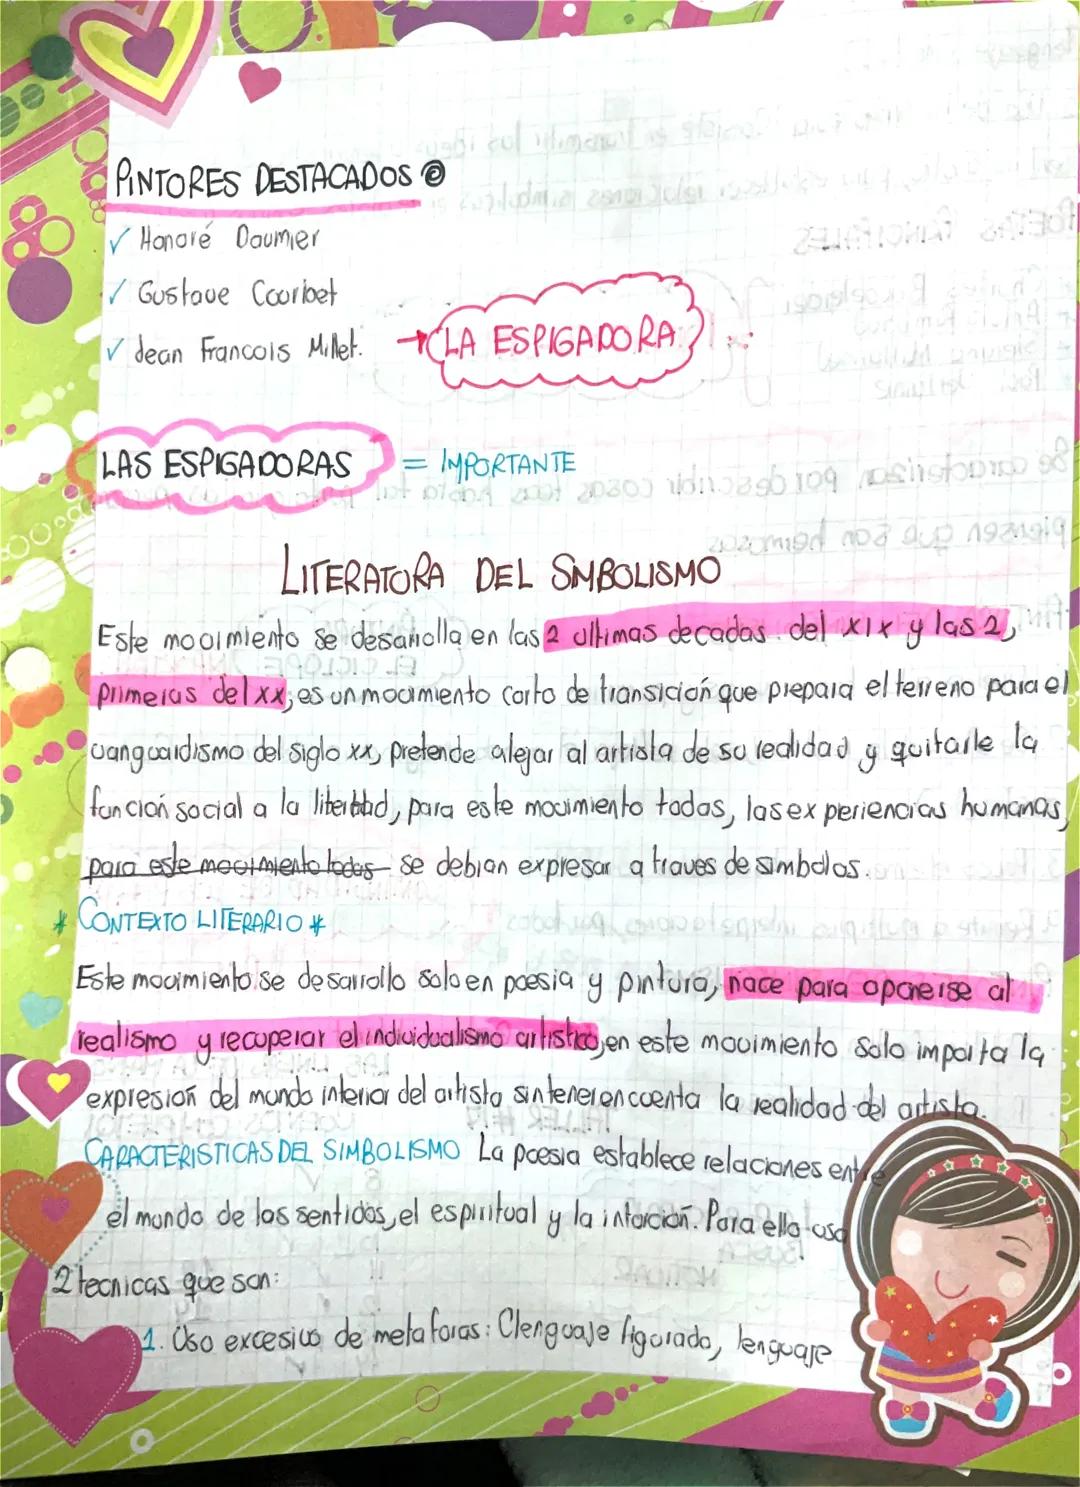 PINTORES DESTACADOS
✓ Honoré Daumier
✓ Gustave Courbet
✓ Jean Francois Millet. → LA ESPIGADORA
LAS ESPIGADORAS = IMPORTANTE
LITERATURA DEL SMBOLISMO
Este movimiento se desarrolla en las 2 ultimas decadas del XIX y las 2,
primeras del XX, es un movimiento corto de transición que prepara el terreno para el
vanguardismo del siglo XX, pretende alejar al artista de su realidad y quitarle la
función social a la litertad, para este movimiento todas, las experiencias humanas,
para este movimiento todas se debian expresar a traves de simbolos.
* CONTEXTO LITERARIO *
Este movimiento se desarrollo solo en poesia y pintura, nace para oponerse al
realismo y recuperar el individualismo artistico, en este movimiento solo importa la
expresión del mundo interior del artista sin tener en cuenta la realidad del artista.
CARACTERISTICAS DEL SIMBOLISMO La poesia establece relaciones entre
el mundo de los sentidos, el espiritual y la intuición. Para ello usa
2 tecnicas que son:
1. Uso excesivo de metaforas: Clenguaje figurado, lenguaje